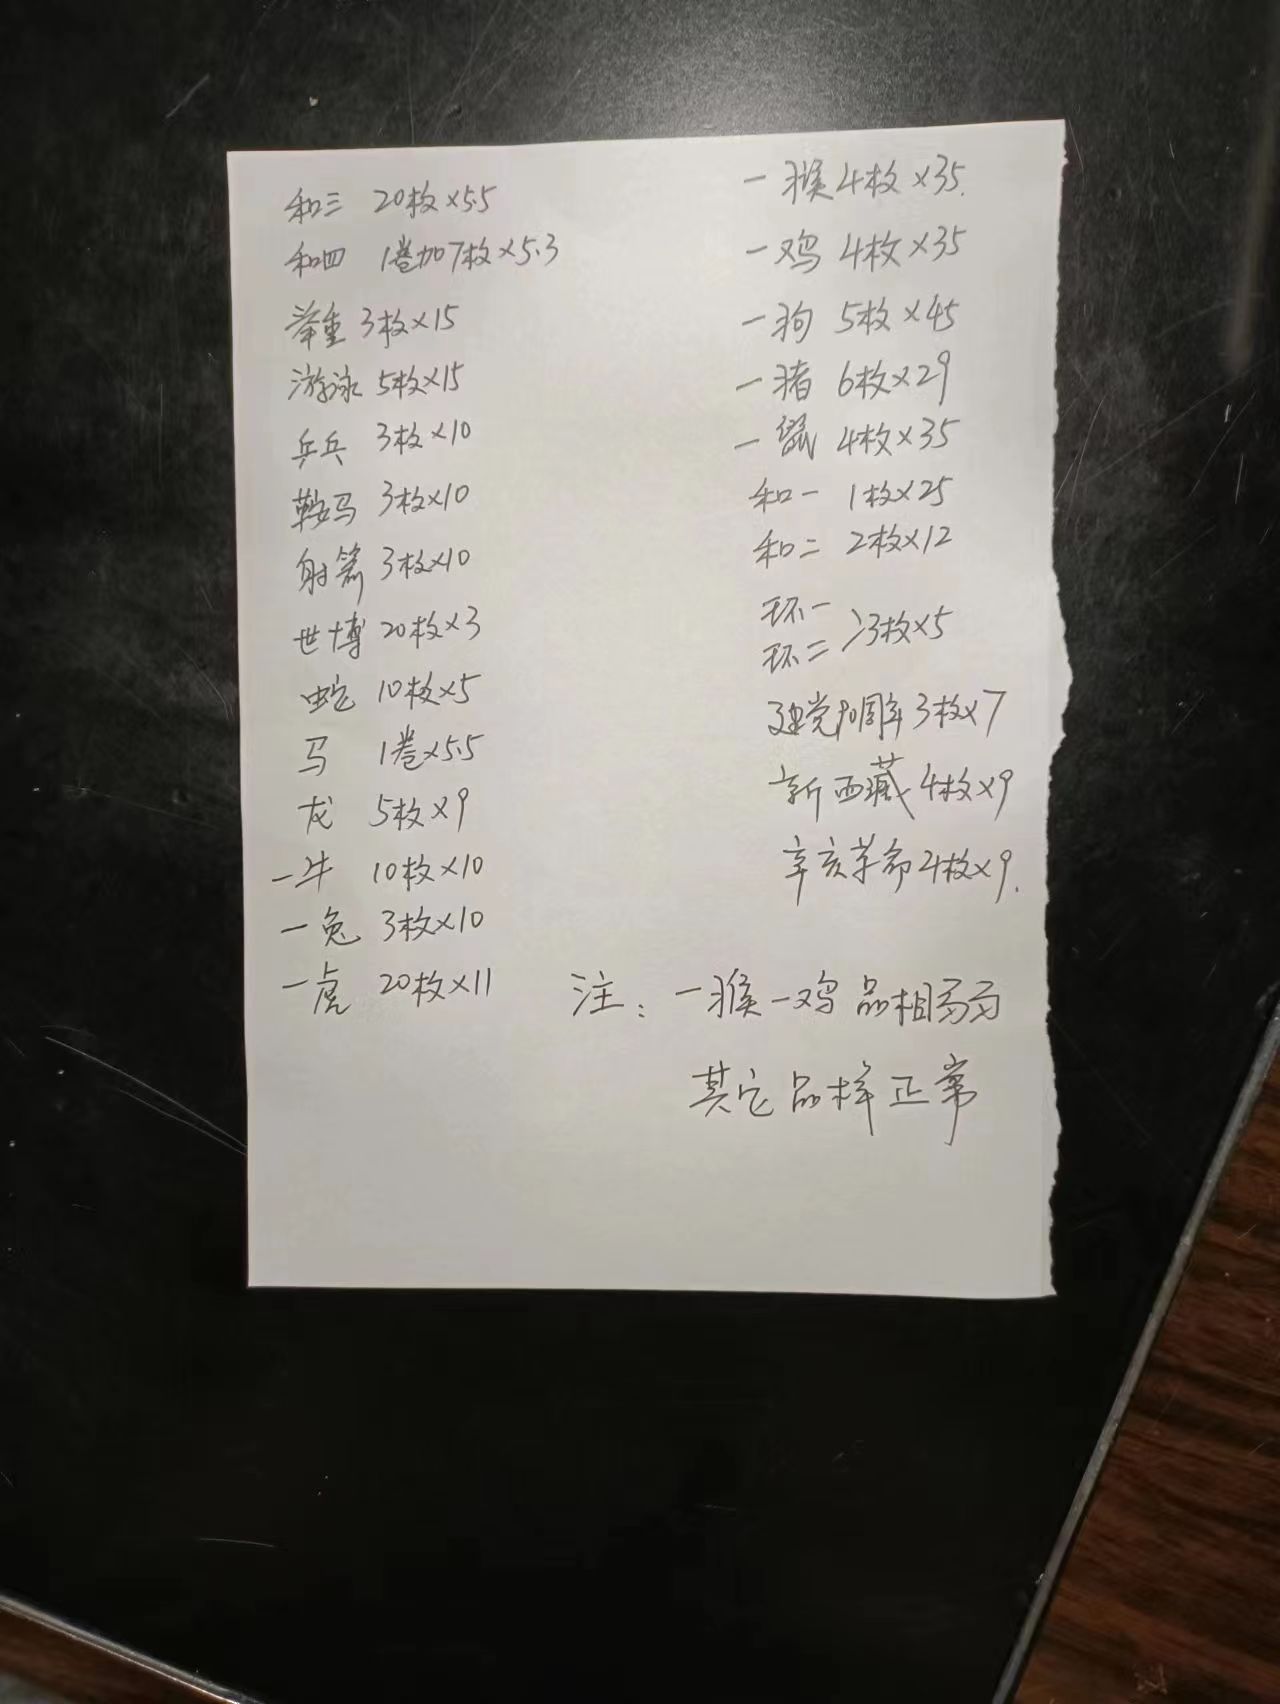 和三 20枚×5.5
和四 1卷加7枚×5.3
举重 3枚×15
游泳 5枚×15
乒乓 3枚×10
鞍马 3枚×10
射箭 3枚×10
世博 20枚×3
蛇 10枚×5
马 1卷×5.5
龙 5枚×9
一牛 10枚×10
一兔 3枚×10
一虎 20枚×11
一猴 4枚×35.
一鸡 4枚×35
一狗 5枚×45
一猪 6枚×29
一鼠 4枚×35
和一 1枚×25
和二 2枚×12
环一
环二 >3枚×5
建党90周年 3枚×7
新西藏 4枚×9
辛亥革命 4枚×9.
注：一猴一鸡品相弱
其它品样正常